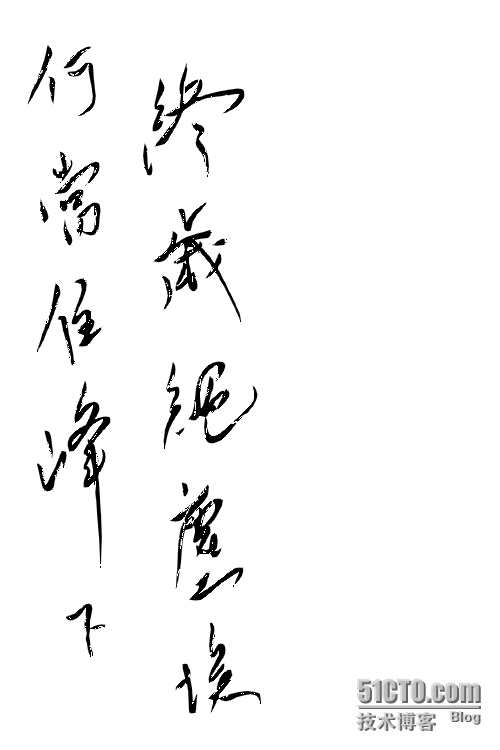 終歲絕塵埃
何當住峰下
51CTO.com
技术博客 Blog